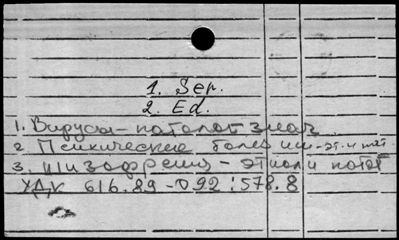 1. Ser.
2. Ed.
1. Вирусы - патолог знач
2. Психические болезни - эт. и пат
3. Шизофрения - этиол и патог
УДК 616.89-092:578.8